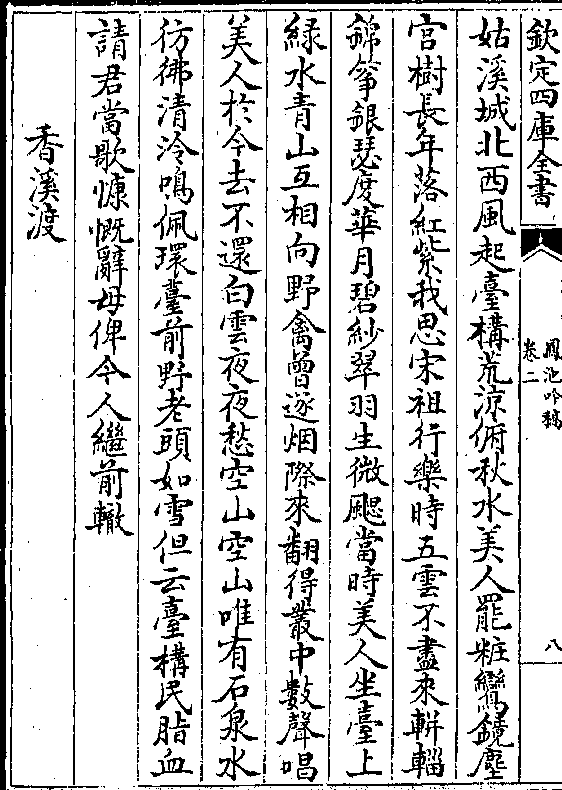 欽定四庫全書
鳳池吟稿
卷二
八
姑溪城北西風起臺構荒涼俯秋水美人罷粧鸞鏡塵
宮樹長年落紅紫我思宋祖行樂時五雲不盡來軿輜
錦箏銀瑟度華月碧紗翠羽生微颸當時美人坐臺上
緑水青山互相向野禽曾逐烟際來翻得叢中數聲唱
美人於今去不還白雲夜夜愁空山空山唯有石泉水
彷彿清泠鳴佩環臺前野老頭如雪但云臺構民脂血
請君當歌慷慨辭毋俾今人繼前轍
香溪渡